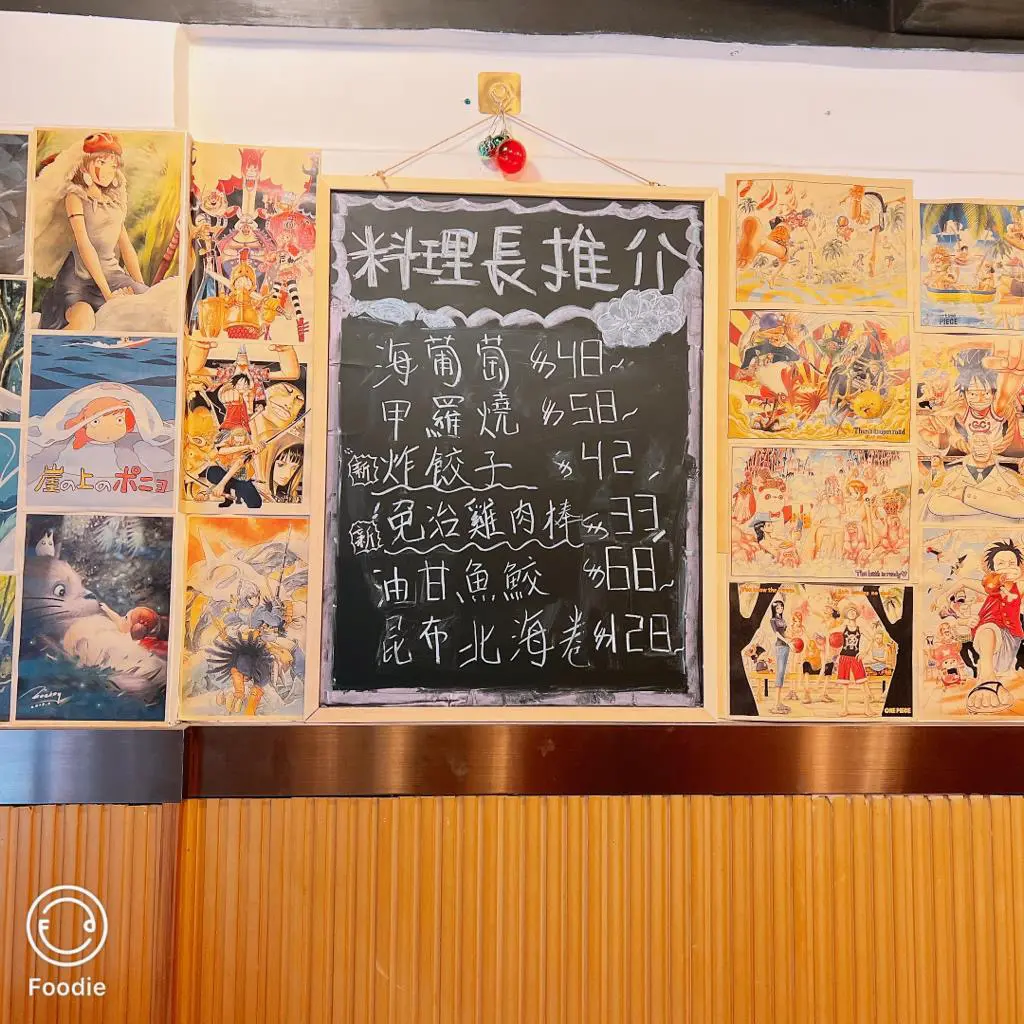 料理長推介
海葡萄 $48~
甲羅燒 $58~
新 炸餃子 $42
新 免治雞肉棒 $33
油甘魚鮫 $68~
昆布北海卷 $128
崖の上のポニョ
ONE PIECE
PIECE
Foodie